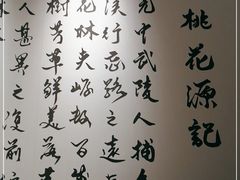 桃花源記
元中武陵人捕
溪行忘路之遠
花林夾岸數百
樹芳草鮮美落
人甚異之復前